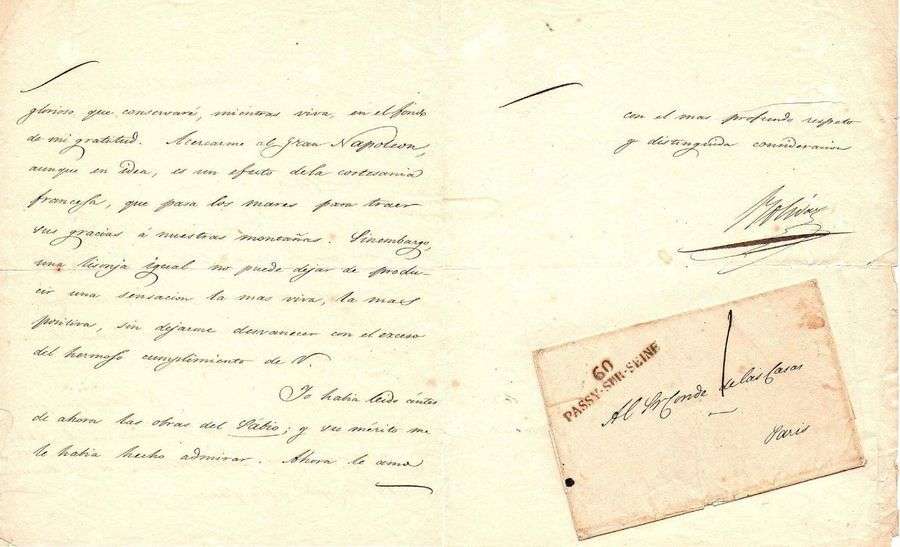 glorioso que conservaré, mientras viva, en el fondo
de mi gratitud. Acercarme al Gran Napoleon,
aunque en idea, es un efecto dela cortesania
francesa, que pasa los mares para traer
sus gracias á nuestras montañas. Sinembargo,
una lisonja igual no puede dejar de produ-
cir una sensacion la mas viva, la mas
positiva, sin dejarme desvanecer con el exceso
del hermoso cumplimiento de V.
Yo habia leido antes
de ahora las obras del Sabio; y su mérito me
le habia hecho admirar. Ahora le amo
con el mas profundo respeto
y distinguida consideracion
Bolivar
60
PASSY-SUR-SEINE
Al Sr Conde de las Casas
Paris